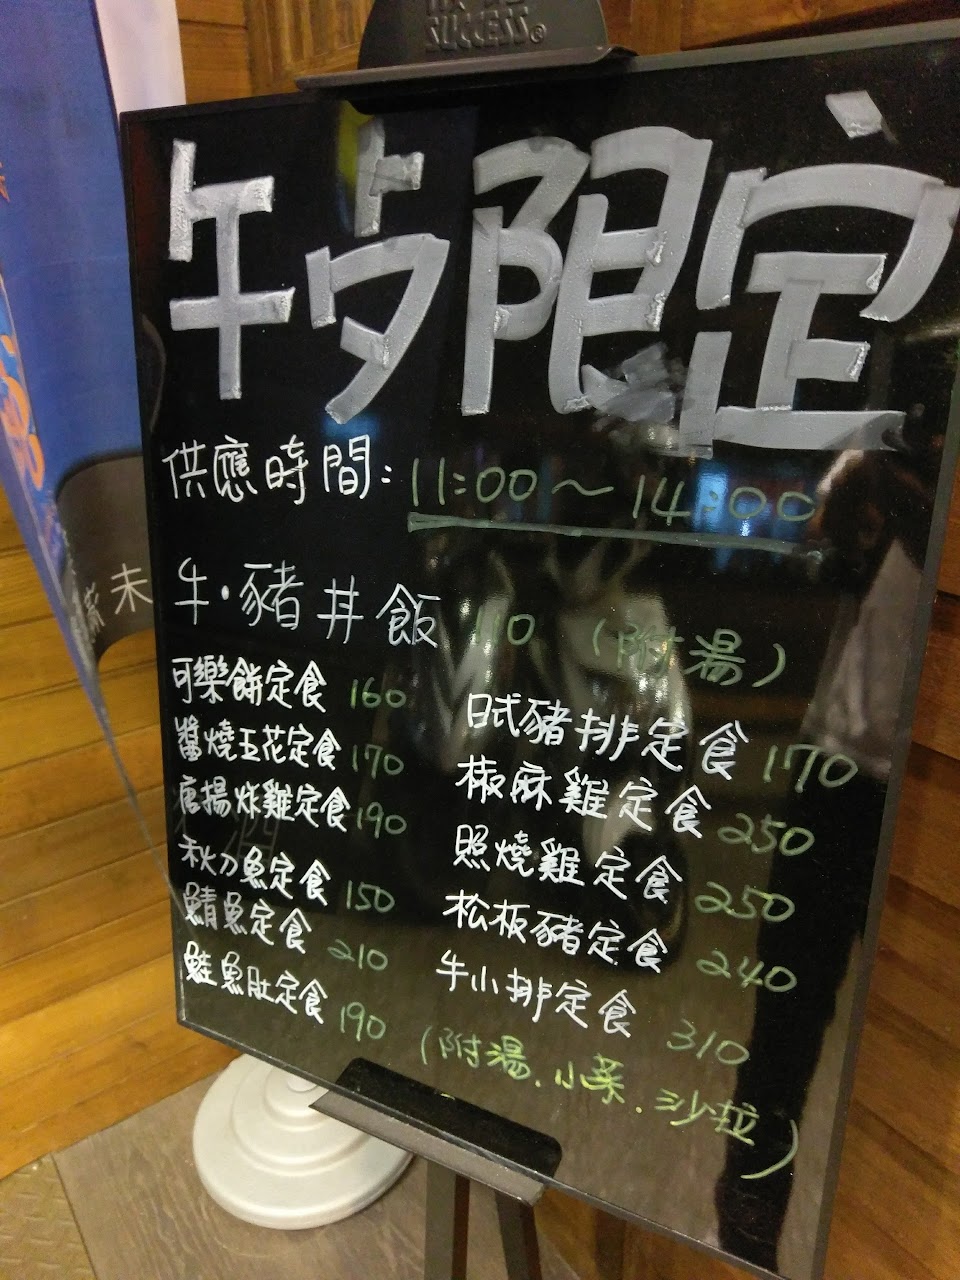 SUCCESS®
午夕限定
供應時間：11:00～14:00
牛・豬丼飯 110 （附湯）
可樂餅定食 160
醬燒玉花定食 170
唐揚炸雞定食 190
秋刀魚定食 150
鯖魚定食 210
鮭魚肚定食 190
日式豬排定食 170
椒麻雞定食 250
照燒雞定食 250
松板豬定食 240
牛小排定食 310
（附湯．小菜．沙拉）
未